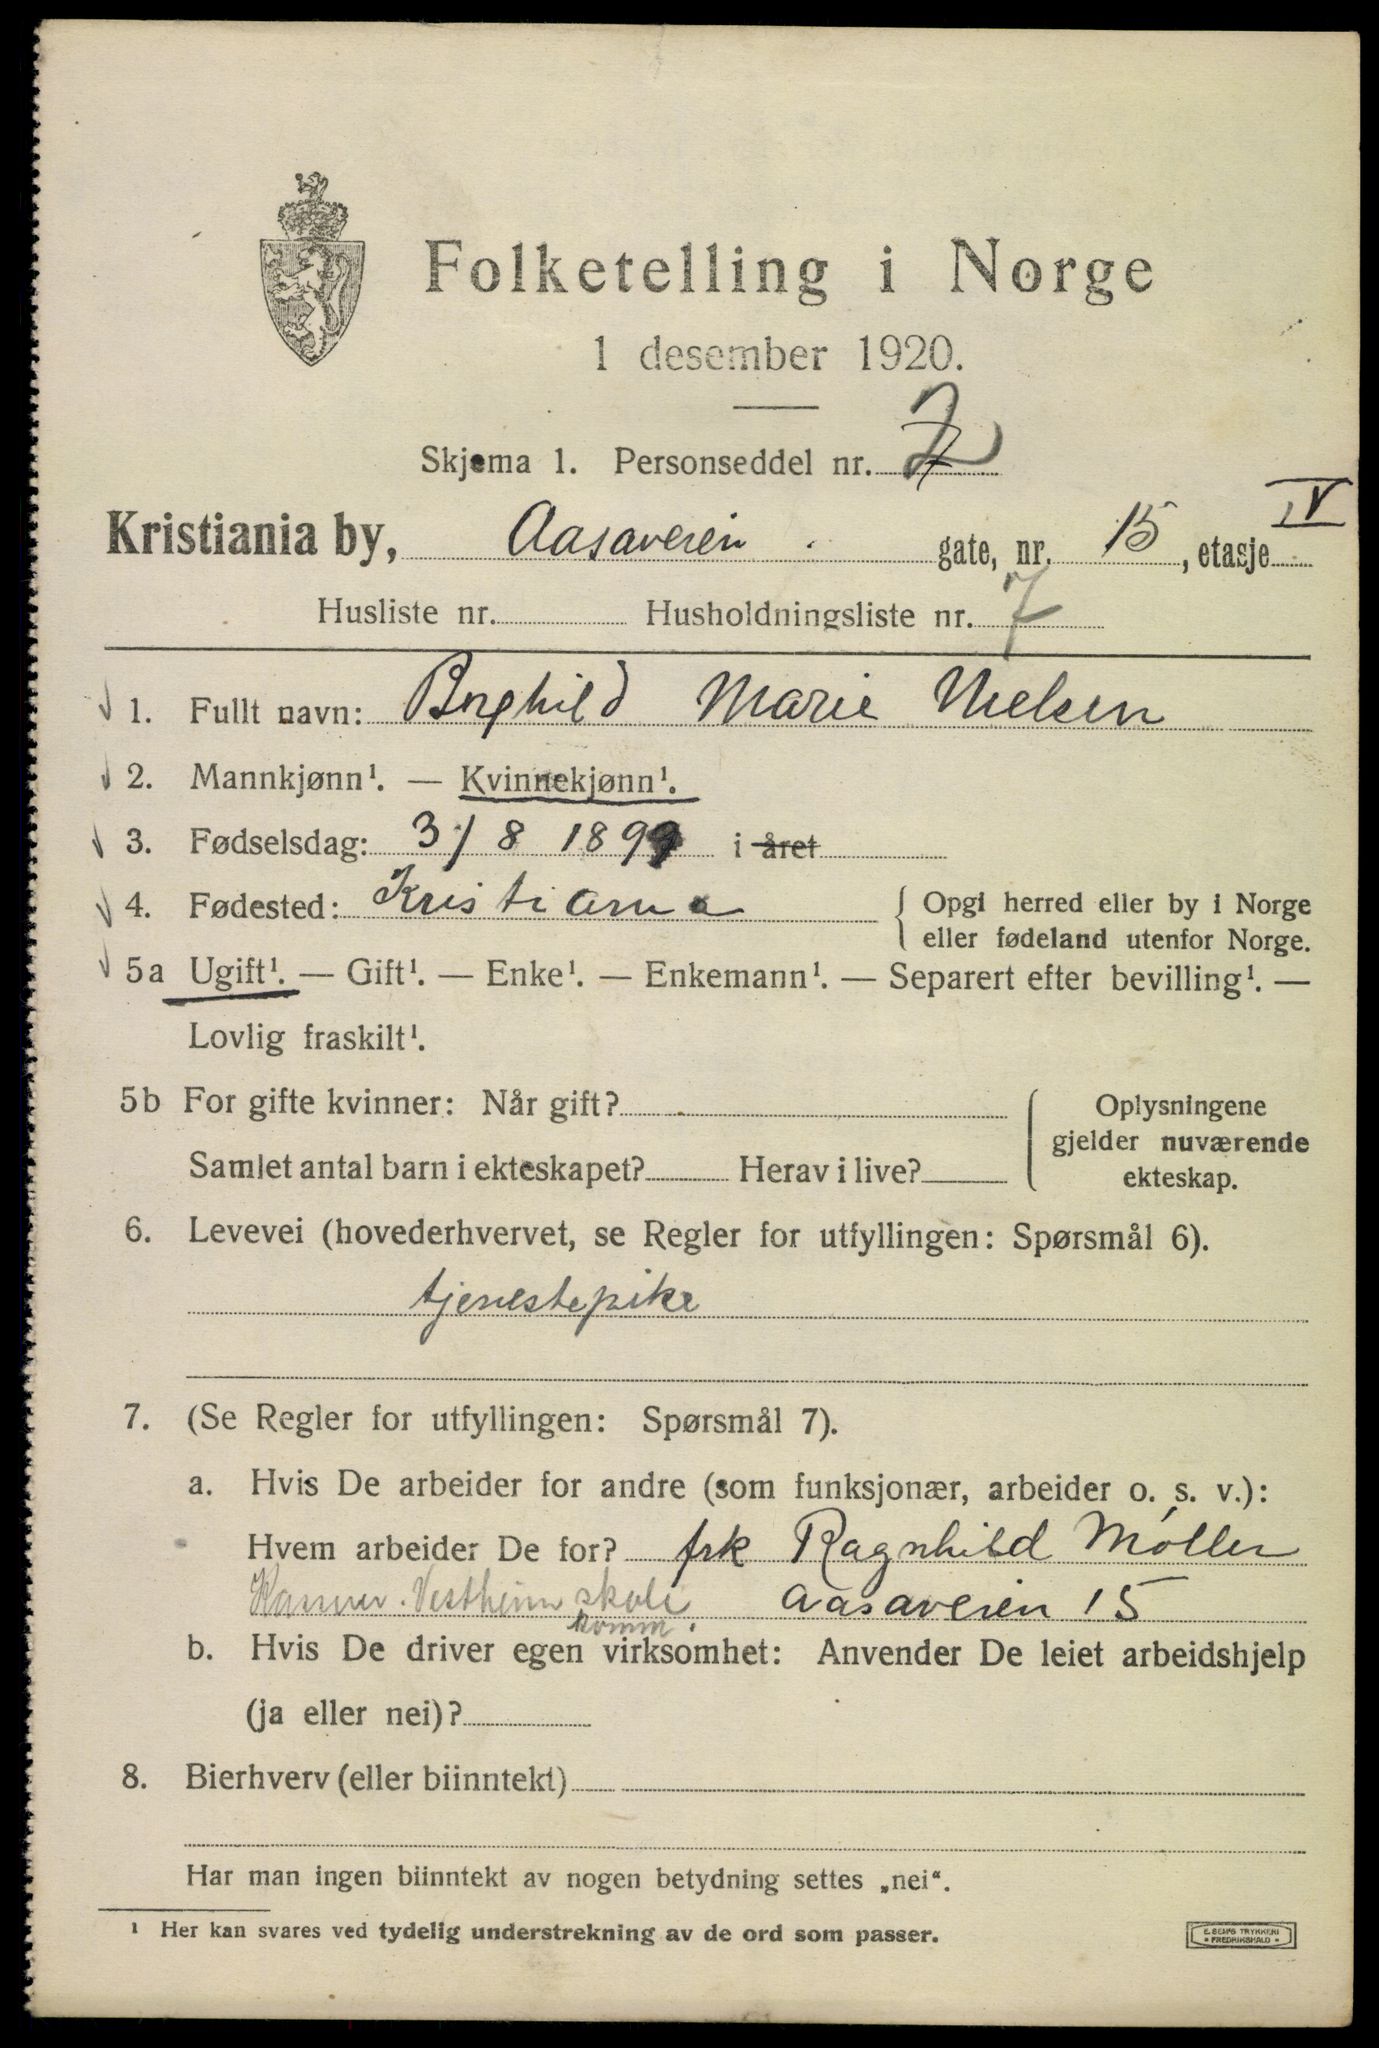 Folketelling i Norge
1 desember 1920.
Skjema 1. Personseddel nr. 2
Kristiania by, Aasaveien gate, nr. 15, etasje IV
Husliste nr. Husholdningsliste nr. 7
1. Fullt navn: Borghild Marie Nielsen
2. Mannkjønn¹. — Kvinnekjønn¹.
3. Fødselsdag: 3/8 1899 i året
4. Fødested: Kristiania { Opgi herred eller by i Norge
eller fødeland utenfor Norge.
5a Ugift¹. — Gift¹. — Enke¹. — Enkemann¹. — Separert efter bevilling¹. —
Lovlig fraskilt¹.
5b For gifte kvinner: Når gift? { Oplysningene
gjelder nuværende
Samlet antal barn i ekteskapet? Herav i live? ekteskap.
6. Levevei (hovederhvervet, se Regler for utfyllingen: Spørsmål 6).
tjenestepike
7. (Se Regler for utfyllingen: Spørsmål 7).
a. Hvis De arbeider for andre (som funksjonær, arbeider o. s. v.):
Hvem arbeider De for? frk Ragnhild Møller
Vestheim skole Aasaveien 15
komm.
b. Hvis De driver egen virksomhet: Anvender De leiet arbeidshjelp
(ja eller nei)?
8. Bierhverv (eller biinntekt)
Har man ingen biinntekt av nogen betydning settes „nei“.
¹ Her kan svares ved tydelig understrekning av de ord som passer.
E. SEM'S TRYKKERI
• FREDRIKSHALD •